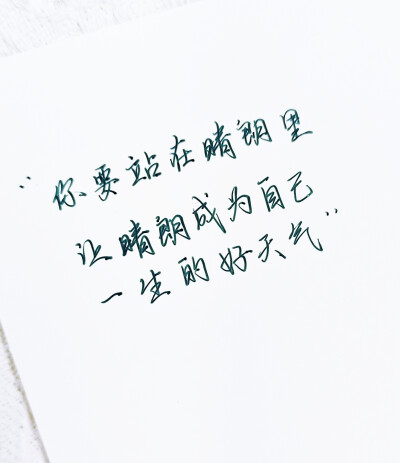 “你要站在晴朗里
让晴朗成为自己
一生的好天气”